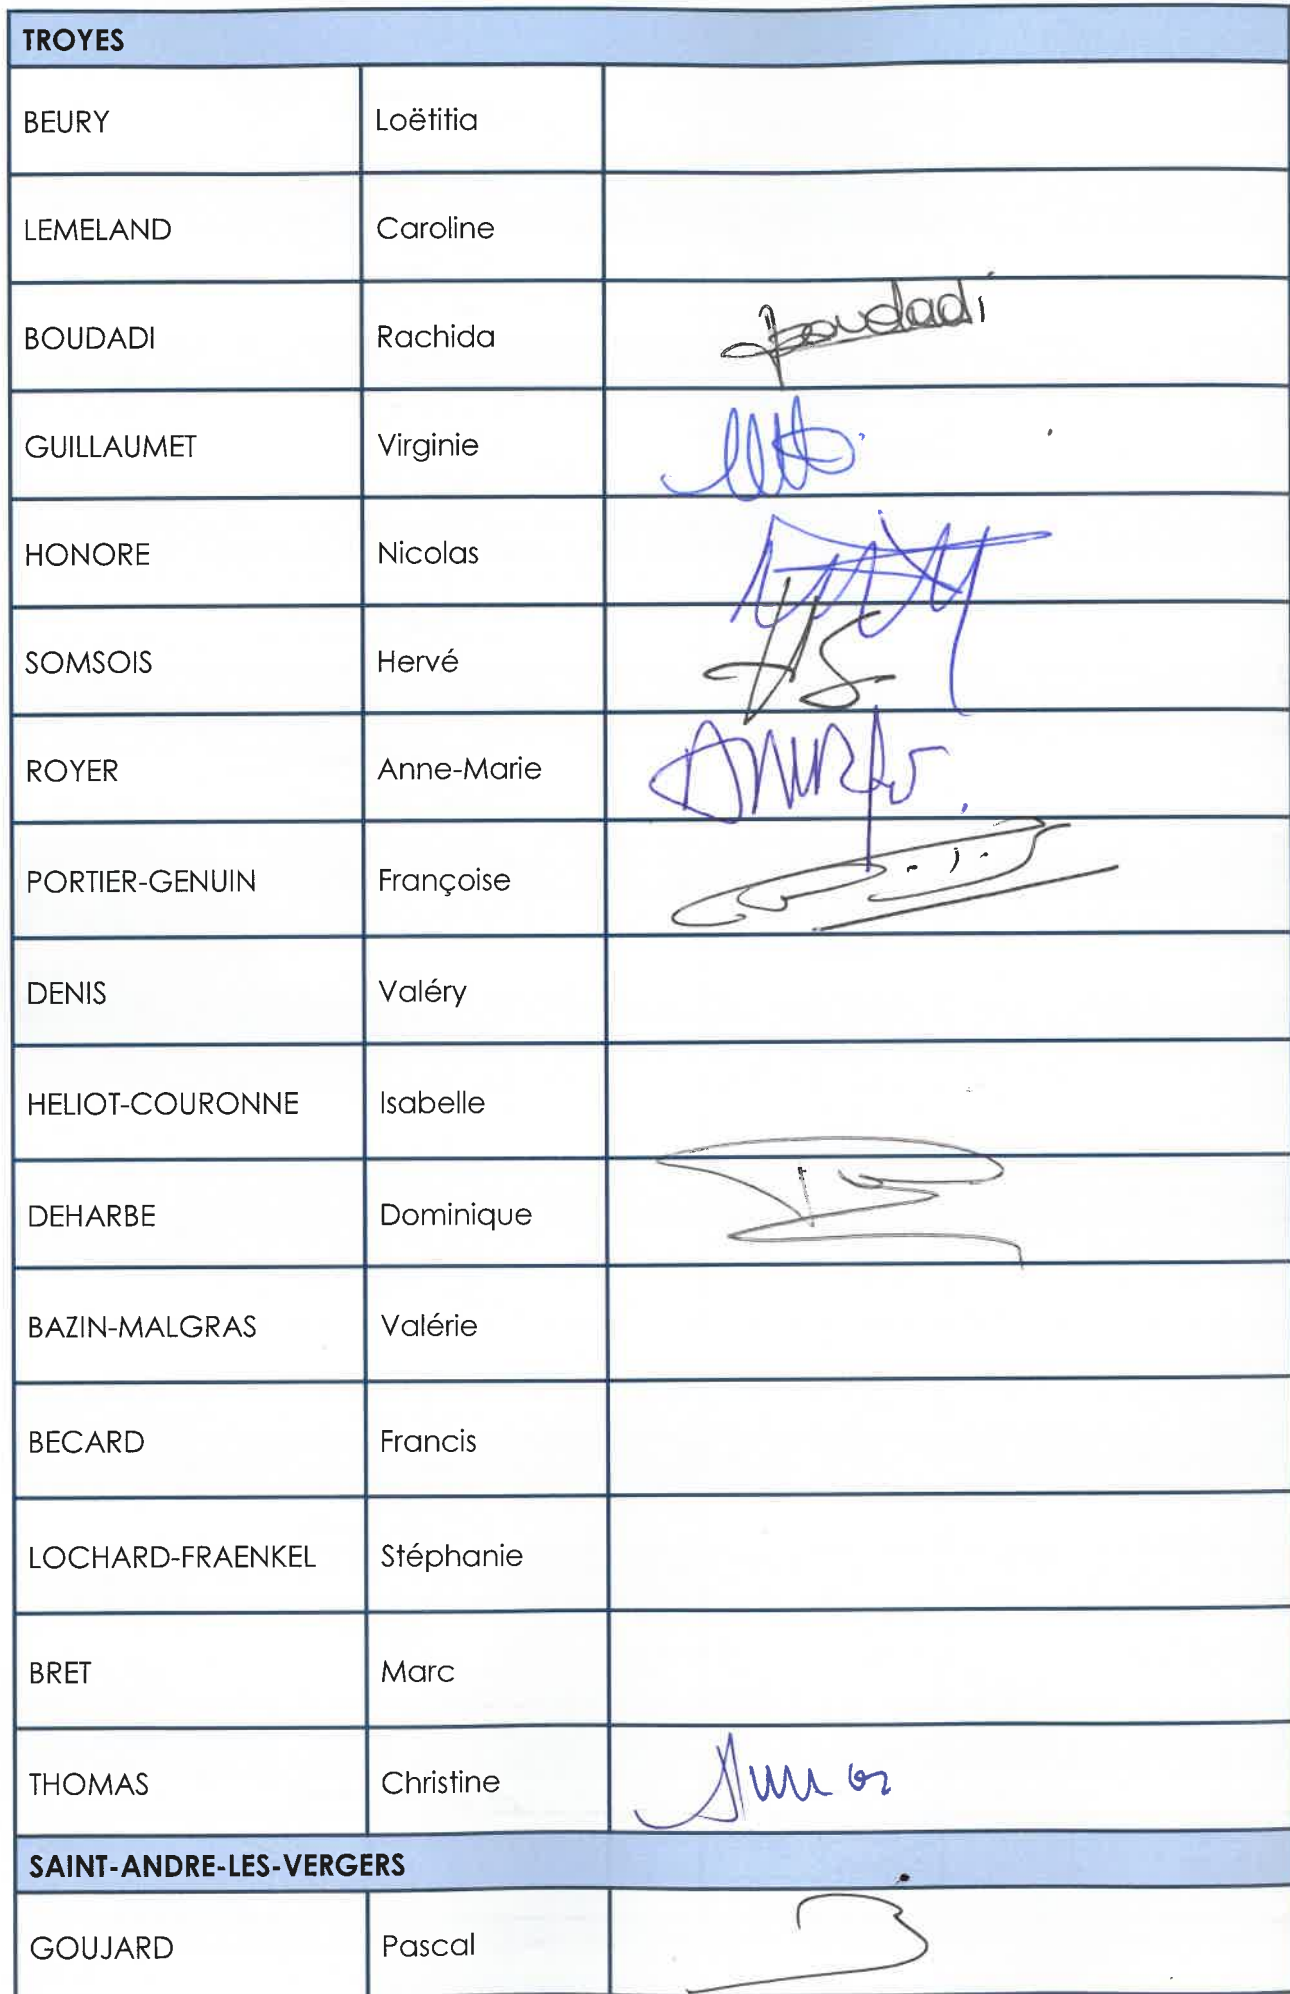 TROYES
BEURY Loëtitia
LEMELAND Caroline
BOUDADI Rachida Boudadi
GUILLAUMET Virginie
HONORE Nicolas
SOMSOIS Hervé HS
ROYER Anne-Marie
PORTIER-GENUIN Françoise
DENIS Valéry
HELIOT-COURONNE Isabelle
DEHARBE Dominique
BAZIN-MALGRAS Valérie
BECARD Francis
LOCHARD-FRAENKEL Stéphanie
BRET Marc
THOMAS Christine
SAINT-ANDRE-LES-VERGERS
GOUJARD Pascal